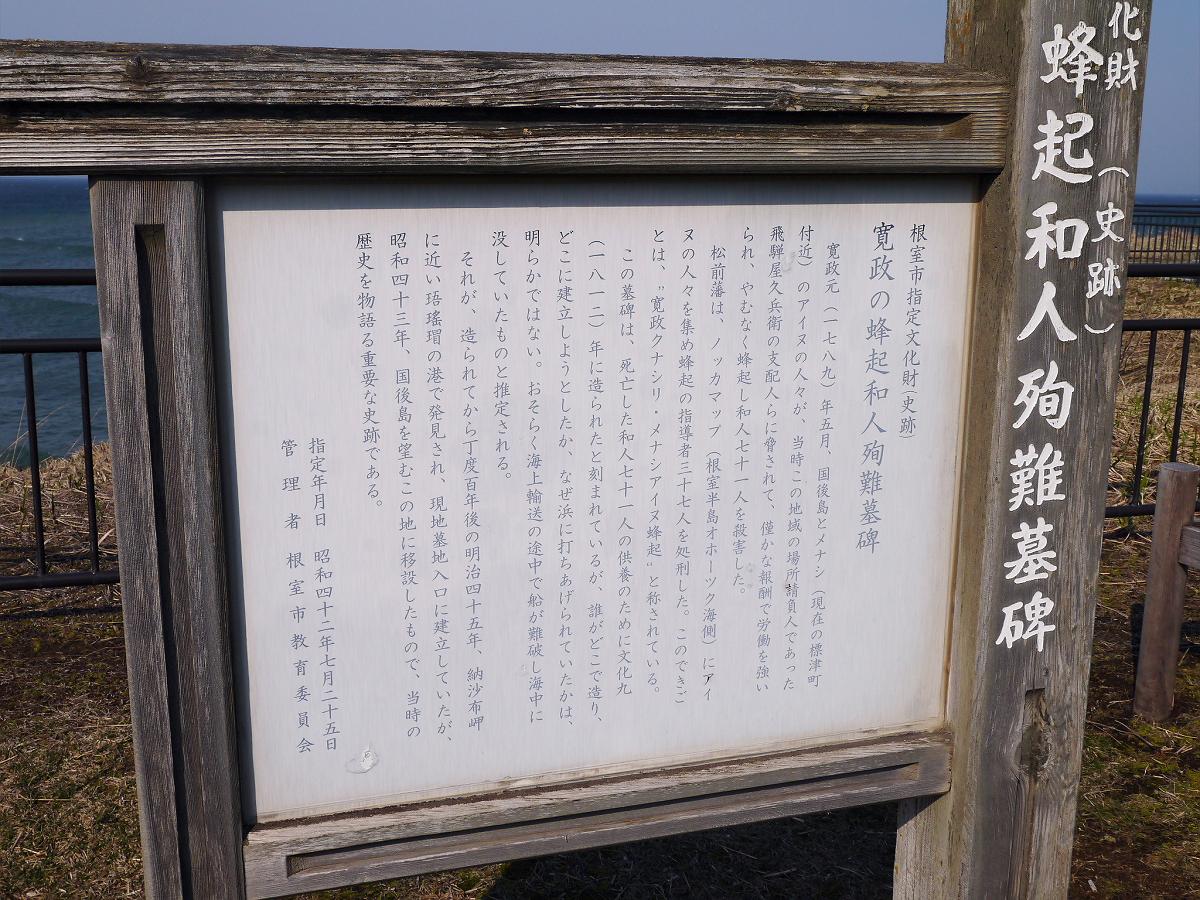 化財(史跡)
蜂起和人殉難墓碑
根室市指定文化財(史跡)
寛政の蜂起和人殉難墓碑
寛政元(一七八九)年五月、国後島とメナシ(現在の標津町
付近)のアイヌの人々が、当時この地域の場所請負人であった
飛騨屋久兵衛の支配人らに脅されて、僅かな報酬で労働を強い
られ、やむなく蜂起し和人七十一人を殺害した。
松前藩は、ノッカマップ(根室半島オホーツク海側)にアイ
ヌの人々を集め蜂起の指導者三十七人を処刑した。このできご
とは、〝寛政クナシリ・メナシアイヌ蜂起〟と称されている。
この墓碑は、死亡した和人七十一人の供養のために文化九
(一八一二)年に造られたと刻まれているが、誰がどこで造り、
どこに建立しようとしたか、なぜ浜に打ちあげられていたかは、
明らかではない。おそらく海上輸送の途中で船が難破し海中に
没していたものと推定される。
それが、造られてから丁度百年後の明治四十五年、納沙布岬
に近い珸瑤瑁の港で発見され、現地墓地入口に建立していたが、
昭和四十三年、国後島を望むこの地に移設したもので、当時の
歴史を物語る重要な史跡である。
指定年月日 昭和四十二年七月二十五日
管理者 根室市教育委員会